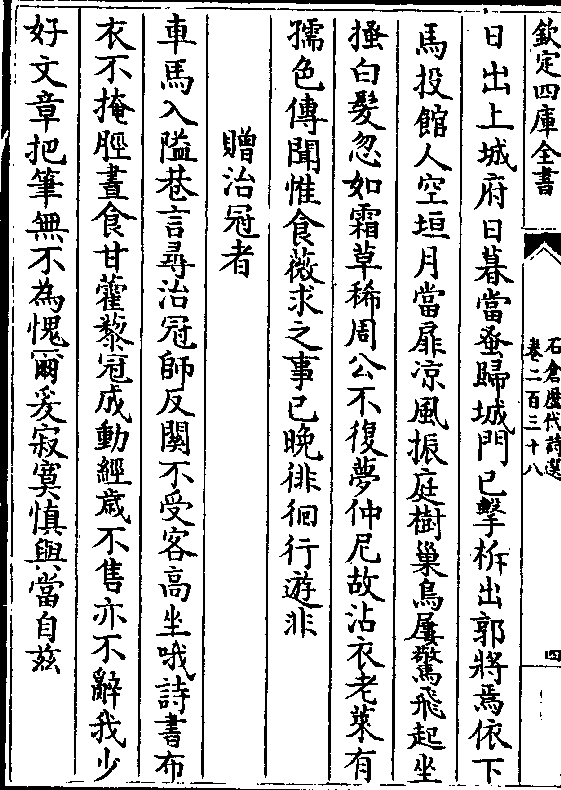 欽定四庫全書
石倉歷代詩選
卷二百三十八
四
日出上城府日暮當蚤歸城門已擊柝出郭將焉依下
馬投館人空垣月當扉凉風振庭樹巢烏屢驚飛起坐
搔白髮忽如霜草稀周公不復夢仲尼故沾衣老萊有
孺色傳聞惟食薇求之事已晚徘徊行遊非
贈治冠者
車馬入隘巷言尋治冠師反關不受客高坐哦詩書布
衣不掩脛晝食甘藿藜冠成動經歲不售亦不辭我少
好文章把筆無不為愧爾爰寂寞慎與當自兹